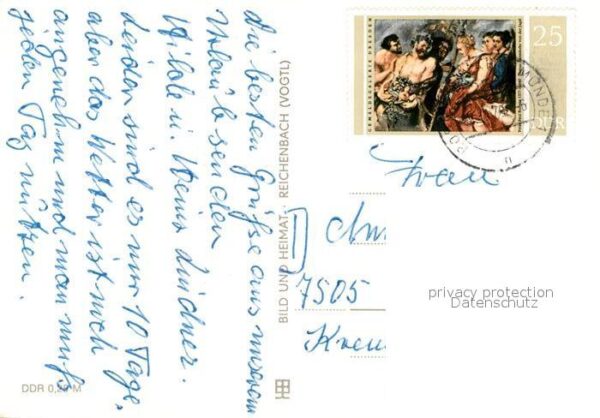 die besten Grüße aus unserem
Urlaub senden
Hilde u. Heinz Lindner.
Leider sind es nur 10 Tage,
aber das Wetter ist noch
angenehm und man muß
jeden Tag nützen.
BILD UND HEIMAT · REICHENBACH (VOGTL)
DDR 0,25 M
GEMÄLDEGALERIE DRESDEN
25
DDR
Frau
7505
privacy protection
Datenschutz